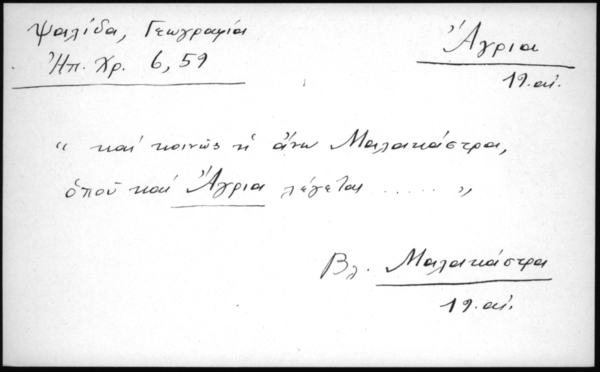 Ψαλίδα, Γεωγραφία
Ἠπ. Χρ. 6, 59
Ἄγρια
19. αἰ.
“ καί κοινῶς ἡ ἄνω Μαλακάστρα,
ὁποῦ καί Ἄγρια λέγεται ..... „
Βλ. Μαλακάστρα
19. αἰ.